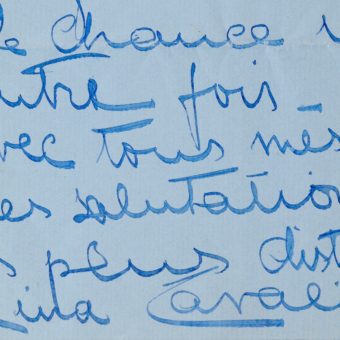 de chance
utre fois
vec tous mes
es salutation
s plus dist
Lina Cavali